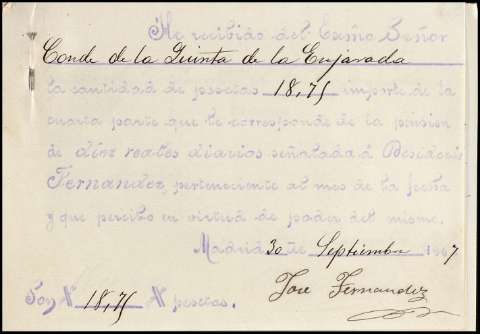 He recibido del Excmo Señor
Conde de la Quinta de la Enjarada
la cantidad de pesetas 18,75 importe de la
cuarta parte que le corresponde de la pension
de diez reales diarios señalada á Desiderio
Fernandez, perteneciente al mes de la fecha
y que percibo en virtud de poder del mismo.
Madrid 30 de Septiembre 1907
Jose Fernandez
Son # 18,75 # pesetas.